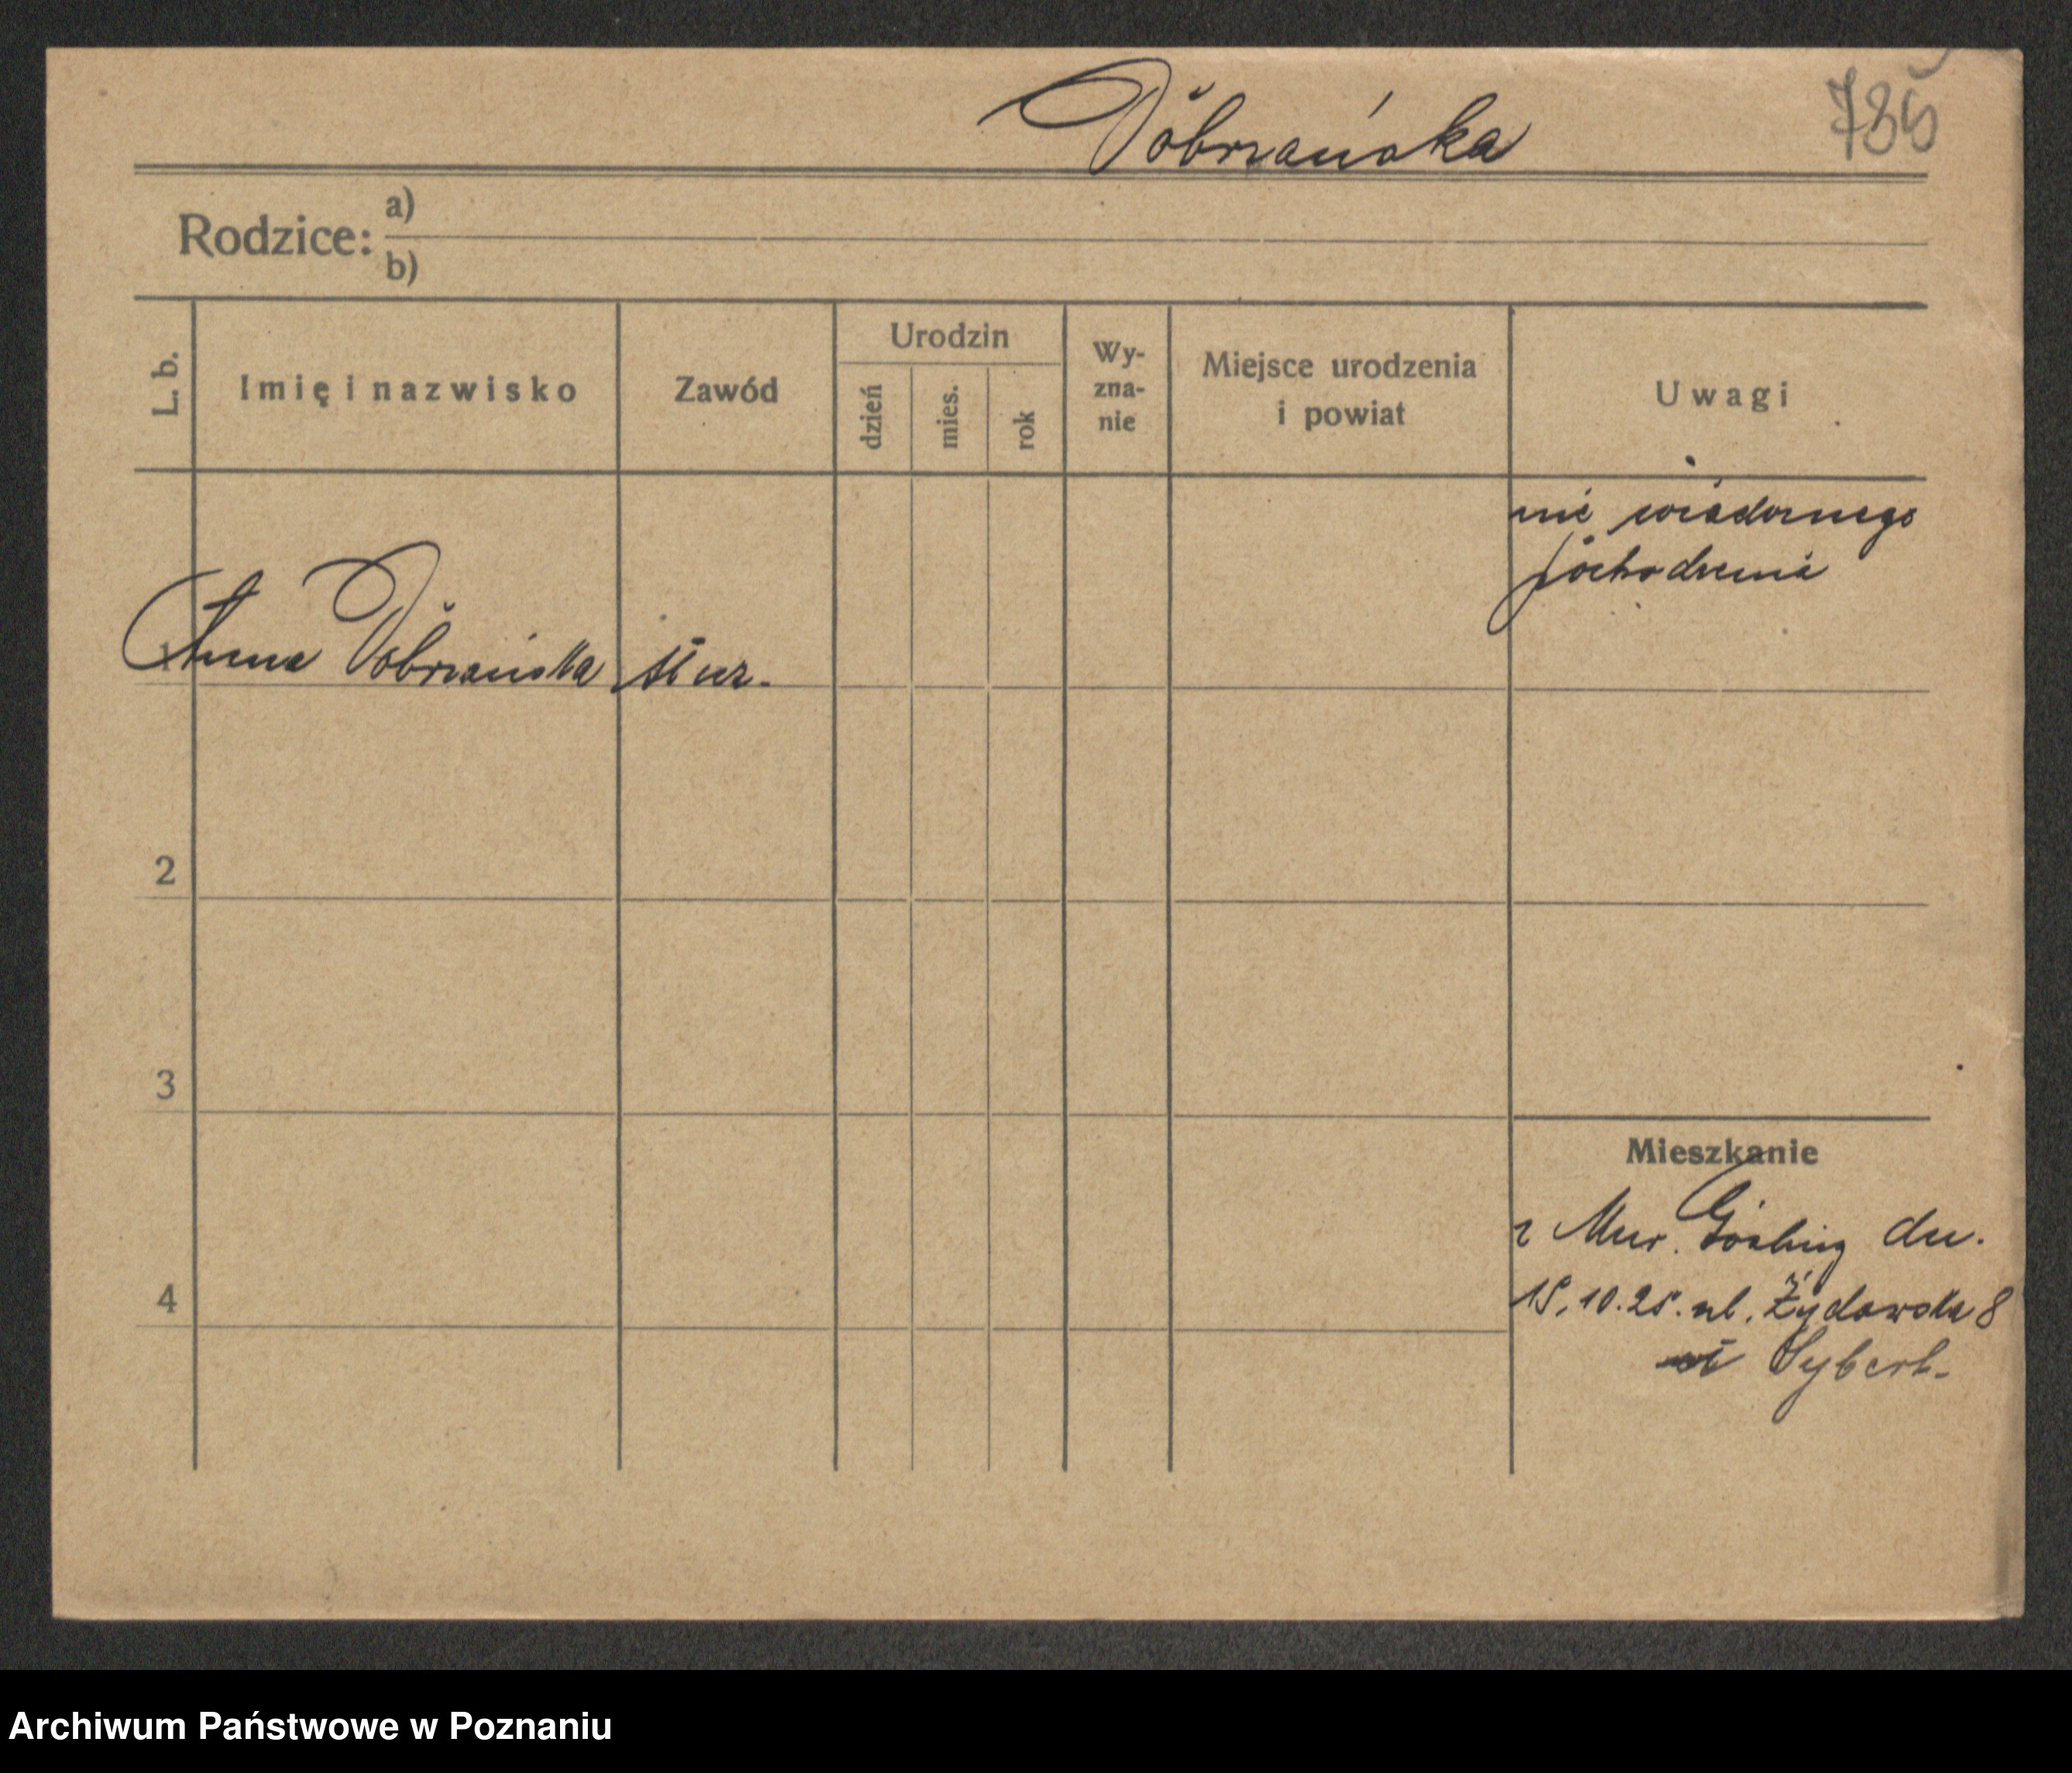 Dobrzańska
785
Rodzice: a)
b)
L. b.
Imię i nazwisko
Zawód
Urodzin
dzień
mies.
rok
Wy-
zna-
nie
Miejsce urodzenia
i powiat
Uwagi
nie wiadomego
pochodzenia
1 Anna Dobrzańska służ.
2
3
4
Mieszkanie
z Mur. Gośliny dn.
15.10.25. ul. Żydowska 8
Sybert.
Archiwum Państwowe w Poznaniu